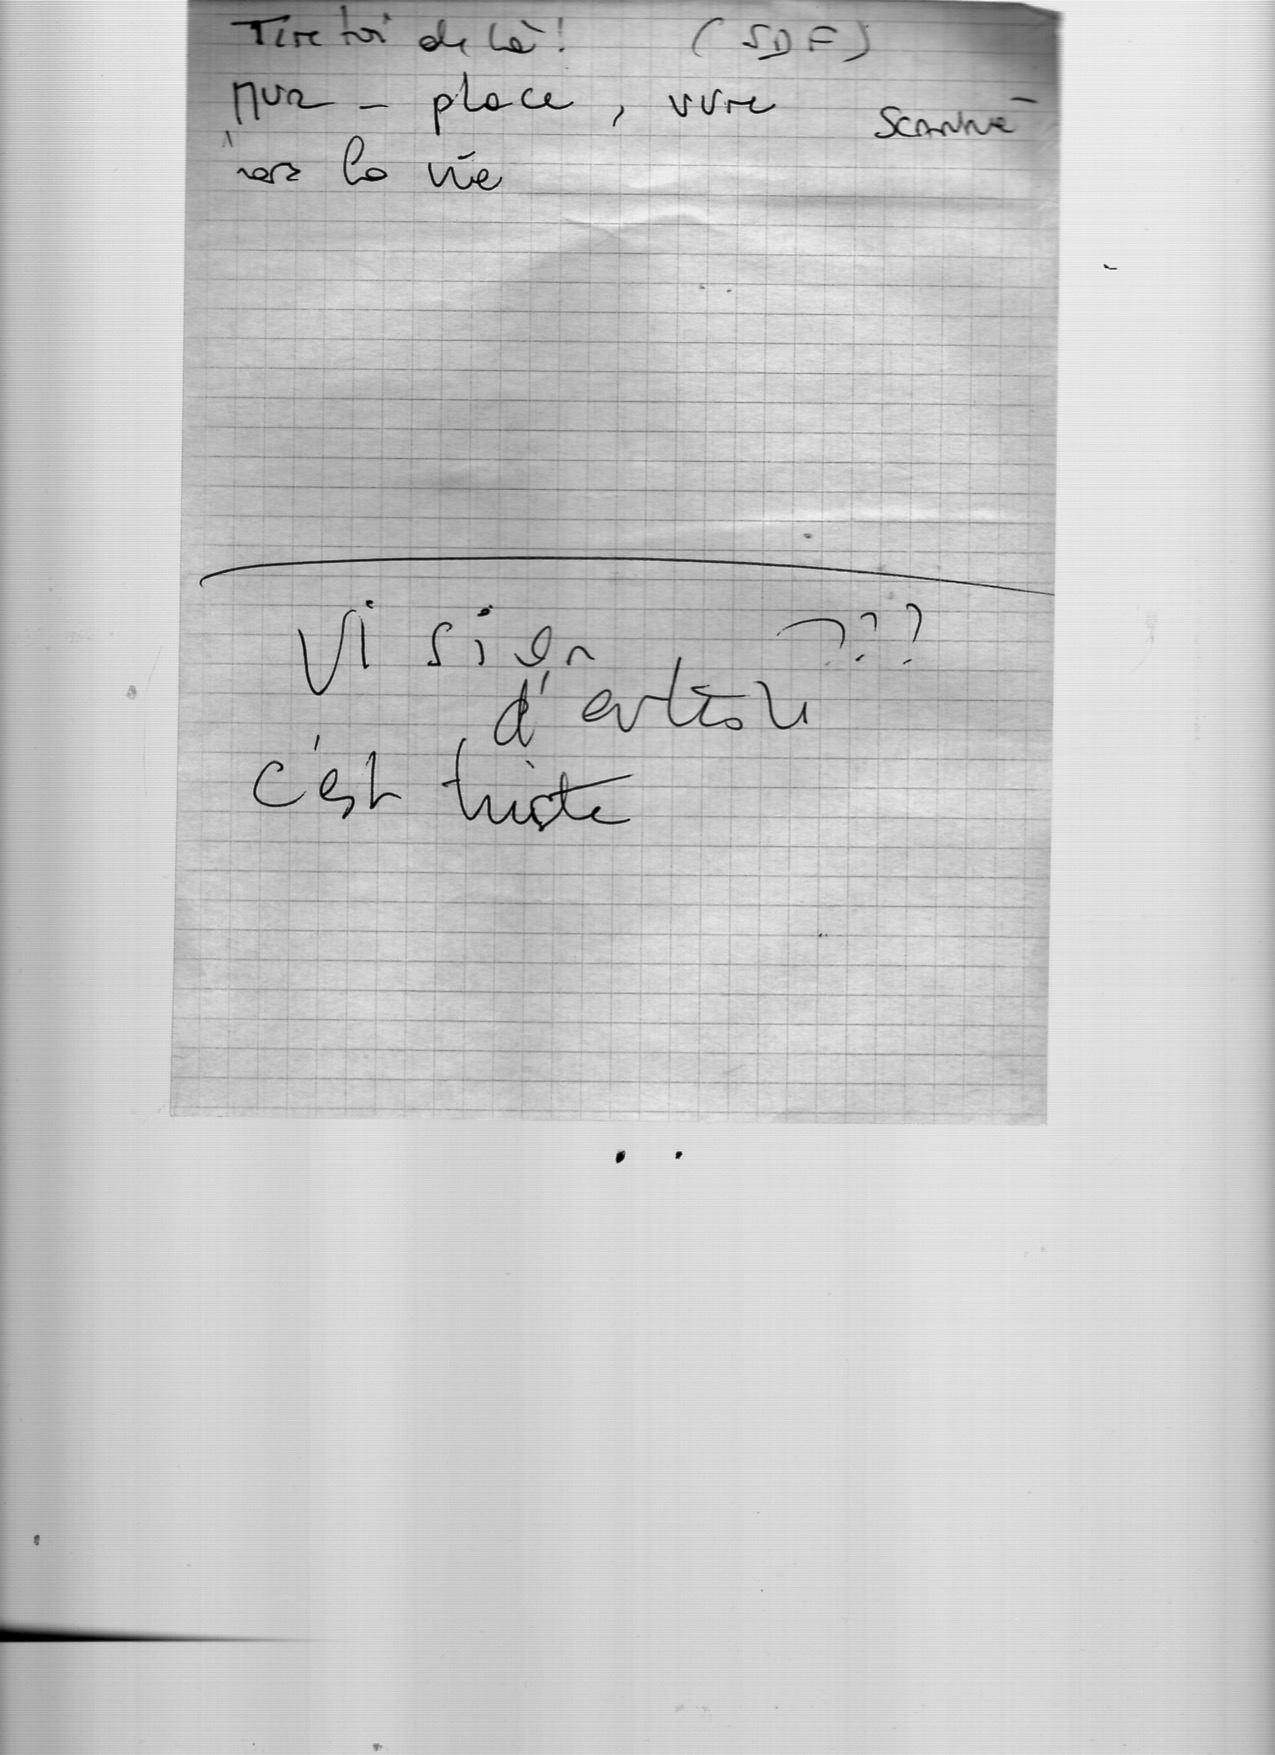 Tire toi de là! (SDF)
mur - place, vivre
scanné
la vie
Vision ???
d'
c'est triste